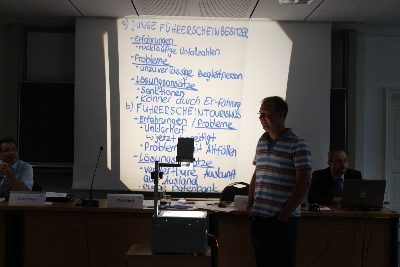 a) JUNGE FÜHRERSCHEINBESITZER
- Erfahrungen
- rückläufige Unfallzahlen
- Probleme
- unzuverlässige Begleitperson
- Lösungsansätze
- Sanktionen
- Könner durch Er-fahrung
b) FÜHRERSCHEINTOURISMUS
- Erfahrungen / Probleme
- Unklarheit
↳ jetzt
- Probleme mit Altfällen
- Lösungsansätze
- Auskunft
aus Ausland
- Datenbank